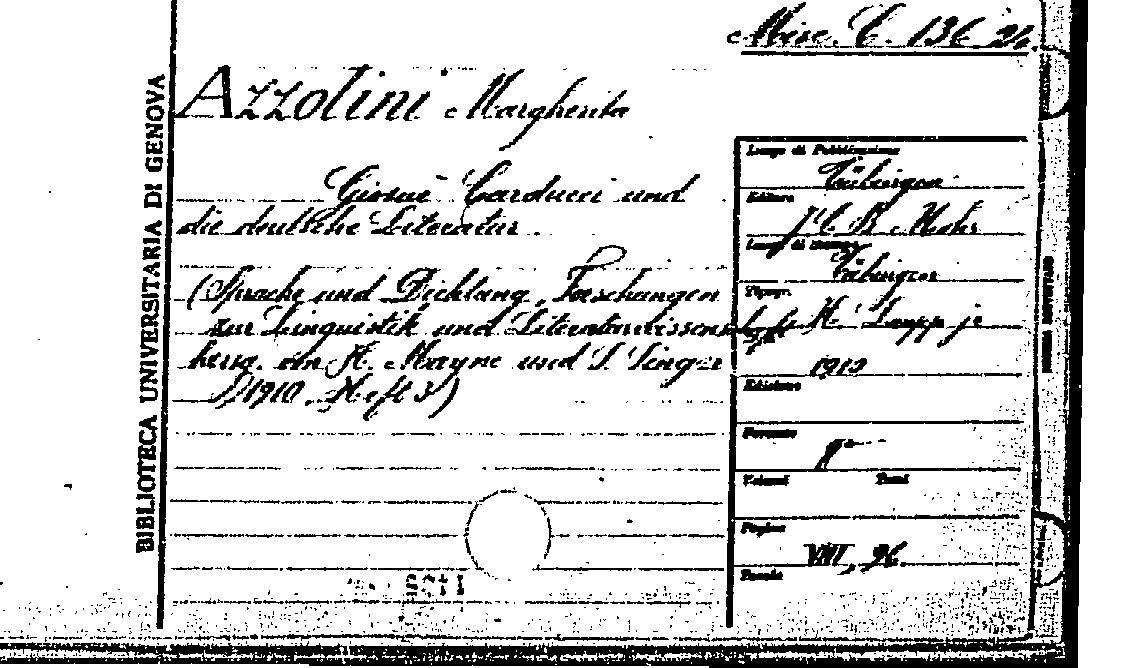 Misc. C. 136. 24.
BIBLIOTECA UNIVERSITARIA DI GENOVA
Azzolini Margherita
Giosuè Carducci und
die deutsche Literatur.
(Sprache und Dichtung, Forschungen
zur Linguistik und Literaturwissenschaft
hersg. von H. Mayne und S. Singer
1910. Heft 3)
Luogo di Pubblicazione
Tübingen
Editore
J. C. B. Mohr
Luogo di stampa
Tübingen
Tipogr.
H. Laupp jr
1910
Edizione
Formato
8°
Volumi Tomi
Pagine
VIII, 96.
Tavole